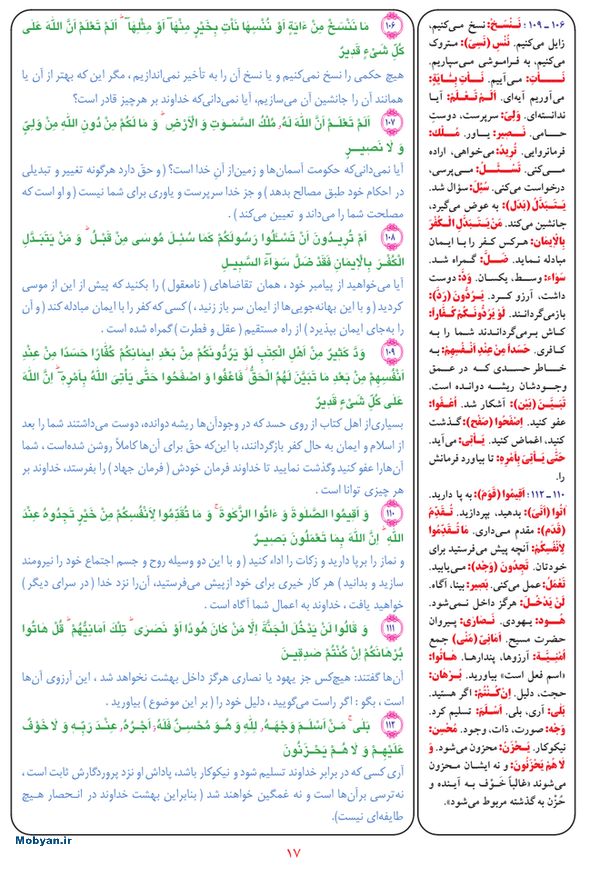 ۱۰۶ مَا نَنْسَخْ مِنْ ءَايَةٍ أَوْ نُنْسِهَا نَأْتِ بِخَيْرٍ مِنْهَآ أَوْ مِثْلِهَآ ۗ أَلَمْ تَعْلَمْ أَنَّ اللهَ عَلَى
كُلِّ شَيْءٍ قَدِيرٌ
هیچ حکمی را نسخ نمی‌کنیم و یا نسخ آن را به تأخیر نمی‌اندازیم ، مگر این که بهتر از آن یا
همانند آن را جانشین آن می‌سازیم، آیا نمی‌دانی‌که خداوند بر هرچیز قادر است؟
۱۰۷ أَلَمْ تَعْلَمْ أَنَّ اللهَ لَهُ مُلْكُ السَّمٰوٰتِ وَ الْأَرْضِ ۗ وَ مَا لَكُمْ مِنْ دُونِ اللهِ مِنْ وَلِيٍّ
وَ لَا نَصِيرٍ
آیا نمی‌دانی‌که حکومت آسمان‌ها و زمین‌از آن خدا است؟ ( و حقّ دارد هرگونه تغییر و تبدیلی
در احکام خود طبق مصالح بدهد ) و جز خدا سرپرست و یاوری برای شما نیست ( و او است که
مصلحت شما را می‌داند و تعیین می‌کند ) .
۱۰۸ أَمْ تُرِيدُونَ أَنْ تَسْئَلُوا رَسُولَكُمْ كَمَا سُئِلَ مُوسَى مِنْ قَبْلُ ۗ وَ مَنْ يَتَبَدَّلِ
الْكُفْرَ بِالْإِيمَانِ فَقَدْ ضَلَّ سَوَآءَ السَّبِيلِ
آیا می‌خواهید از پیامبر خود ، همان تقاضاهای ( نامعقول ) را بکنید که پیش از این از موسی
کردید ( و با این بهانه‌جویی‌ها از ایمان سر باز زنید ، ) کسی که کفر را با ایمان مبادله کند ( و آن
را به‌جای ایمان بپذیرد ) از راه مستقیم ( عقل و فطرت ) گمراه شده است .
۱۰۹ وَدَّ كَثِيرٌ مِنْ أَهْلِ الْكِتٰبِ لَوْ يَرُدُّونَكُمْ مِنْ بَعْدِ إِيمَانِكُمْ كُفَّارًا حَسَدًا مِنْ عِنْدِ
أَنْفُسِهِمْ مِنْ بَعْدِ مَا تَبَيَّنَ لَهُمُ الْحَقُّ ۖ فَاعْفُوا وَ اصْفَحُوا حَتَّى يَأْتِيَ اللهُ بِأَمْرِهِ ۗ إِنَّ اللهَ
عَلَى كُلِّ شَيْءٍ قَدِيرٌ
بسیاری‌از اهل کتاب از روی حسد که در وجودآن‌ها ریشه دوانده، دوست می‌داشتند شما را بعد
از اسلام و ایمان به حال کفر بازگردانند، با این‌که حقّ برای آن‌ها کاملاً روشن شده‌است ، شما
آن‌هارا عفو کنید وگذشت نمایید تا خداوند فرمان خودش ( فرمان جهاد ) را بفرستد، خداوند بر
هر چیزی توانا است .
۱۱۰ وَ أَقِيمُوا الصَّلٰوةَ وَ ءَاتُوا الزَّكٰوةَ ۚ وَ مَا تُقَدِّمُوا لِأَنْفُسِكُمْ مِنْ خَيْرٍ تَجِدُوهُ عِنْدَ
اللهِ ۗ إِنَّ اللهَ بِمَا تَعْمَلُونَ بَصِيرٌ
و نماز را برپا دارید و زکات را اداء کنید ( و با این دو وسیله روح و جسم اجتماع خود را نیرومند
سازید و بدانید ) هر کار خیری برای خود ازپیش می‌فرستید، آن‌را نزد خدا ( در سرای دیگر )
خواهید یافت ، خداوند به اعمال شما آگاه است .
۱۱۱ وَ قَالُوا لَنْ يَدْخُلَ الْجَنَّةَ إِلَّا مَنْ كَانَ هُودًا أَوْ نَصَرَى ۗ تِلْكَ أَمَانِيُّهُمْ ۗ قُلْ هَاتُوا
بُرْهَانَكُمْ إِنْ كُنْتُمْ صَدِقِينَ
آن‌ها گفتند: هیچ‌کس جز یهود یا نصاری هرگز داخل بهشت نخواهد شد ، این آرزوی آن‌ها
است ، بگو : اگر راست می‌گویید ، دلیل خود را ( بر این موضوع ) بیاورید .
۱۱۲ بَلَى ۚ مَنْ أَسْلَمَ وَجْهَهُ لِلّٰهِ وَ هُوَ مُحْسِنٌ فَلَهُ أَجْرُهُ عِنْدَ رَبِّهِ وَ لَا خَوْفٌ
عَلَيْهِمْ وَ لَا هُمْ يَحْزَنُونَ
آری کسی که در برابر خداوند تسلیم شود و نیکوکار باشد، پاداش او نزد پروردگارش ثابت است ،
نه‌ترسی برآن‌ها است و نه غمگین خواهند شد ( بنابراین بهشت خداوند در انحصار هیچ
طایفه‌ای نیست).
۱۰۶ ـ ۱۰۹ : نَـنْـسَخْ: نسخ می‌کنیم،
زایل می‌کنیم. نُنْسِ (نَسِیَ): متروک
می‌کنیم، به فراموشی می‌سپاریم.
نَـأْتِ: می‌آییم. نَـأْتِ بِـآیَةٍ:
می‌آوریم آیه‌ای. أَلَـمْ تَـعْلَـمْ: آیا
ندانسته‌ای. وَلِیّ: سرپرست، دوست،
حامی. نَصیر: یاور. مُلْك:
فرمانروایی. تُریدُ: می‌خواهی، اراده
می‌کنی. تَسْئَلُ: می‌پرسی،
درخواست می‌کنی. سُئِلَ: سؤال شد.
یَـتَبَدَّلُ (بَدَل): به عوض می‌گیرد،
جانشین می‌کند. مَنْ یَتَبَدَّلِ الْکُفْرَ
بِالْاِیمانِ: هرکس کفر را با ایمان
مبادله نماید. ضَلَّ: گمراه شد.
سَواء: وسط، یکسان. وَدَّ: دوست
داشت، آرزو کرد. یَـرُدُّونَ (رَدَّ):
بازمی‌گردانند. لَوْ یَرُدُّونَکُمْ کُفّارًا:
کاش برمی‌گرداندند شما را به
کافری. حَسَداً مِنْ عِنْدِ أَنْفُسِهِمْ: به
خاطر حسدی که در عمق
وجودشان ریشه دوانده است.
تَبَیَّنَ (بَیْن): آشکار شد. اُعْفُوا:
عفو کنید. اِصْفَحُوا (صَفْح): گذشت
کنید، اغماض کنید. یَـأْتی: می‌آید.
حَتّی یَأْتِیَ بِأَمْرِهِ: تا بیاورد فرمانش
را.
۱۱۰ ـ ۱۱۲: أَقیمُوا (قَوَمَ): به پا دارید.
اتُوا (اَتَیَ): بدهید، بپردازید. تُـقَدِّمُ
(قَدَمَ): مقدم می‌داری. ما تُقَدِّمُوا
لِأَنْفُسِکُمْ: آنچه پیش می‌فرستید برای
خودتان. تَجِدُونَ (وَجَدَ): می‌یابید.
تَعْمَلُ: عمل می‌کنی. بَصیر: بینا، آگاه.
لَنْ یَدْخُلَ: هرگز داخل نمی‌شود.
هُـود: یهودی. نَصاری: پیروان
حضرت مسیح. أَمانِیّ (مَنَی): جمع
أُمْنِیَّة: آرزوها، پندارها. هاتُوا:
«اسم فعل است» بیاورید. بُرْهان:
حجت، دلیل. إِنْ کُنْتُمْ: اگر هستید.
بَلی: آری، بلی. أَسْلَمَ: تسلیم کرد.
وَجْه: صورت، ذات، وجود. مُحْسِن:
نیکوکار. یَحْزَنُ: محزون می‌شود. وَ
لا هُمْ یَحْزَنُونَ: و نه ایشان محزون
می‌شوند «غالباً خَوْف به آینده و
حُزْن به گذشته مربوط می‌شود».
Mobyan.ir
۱۷